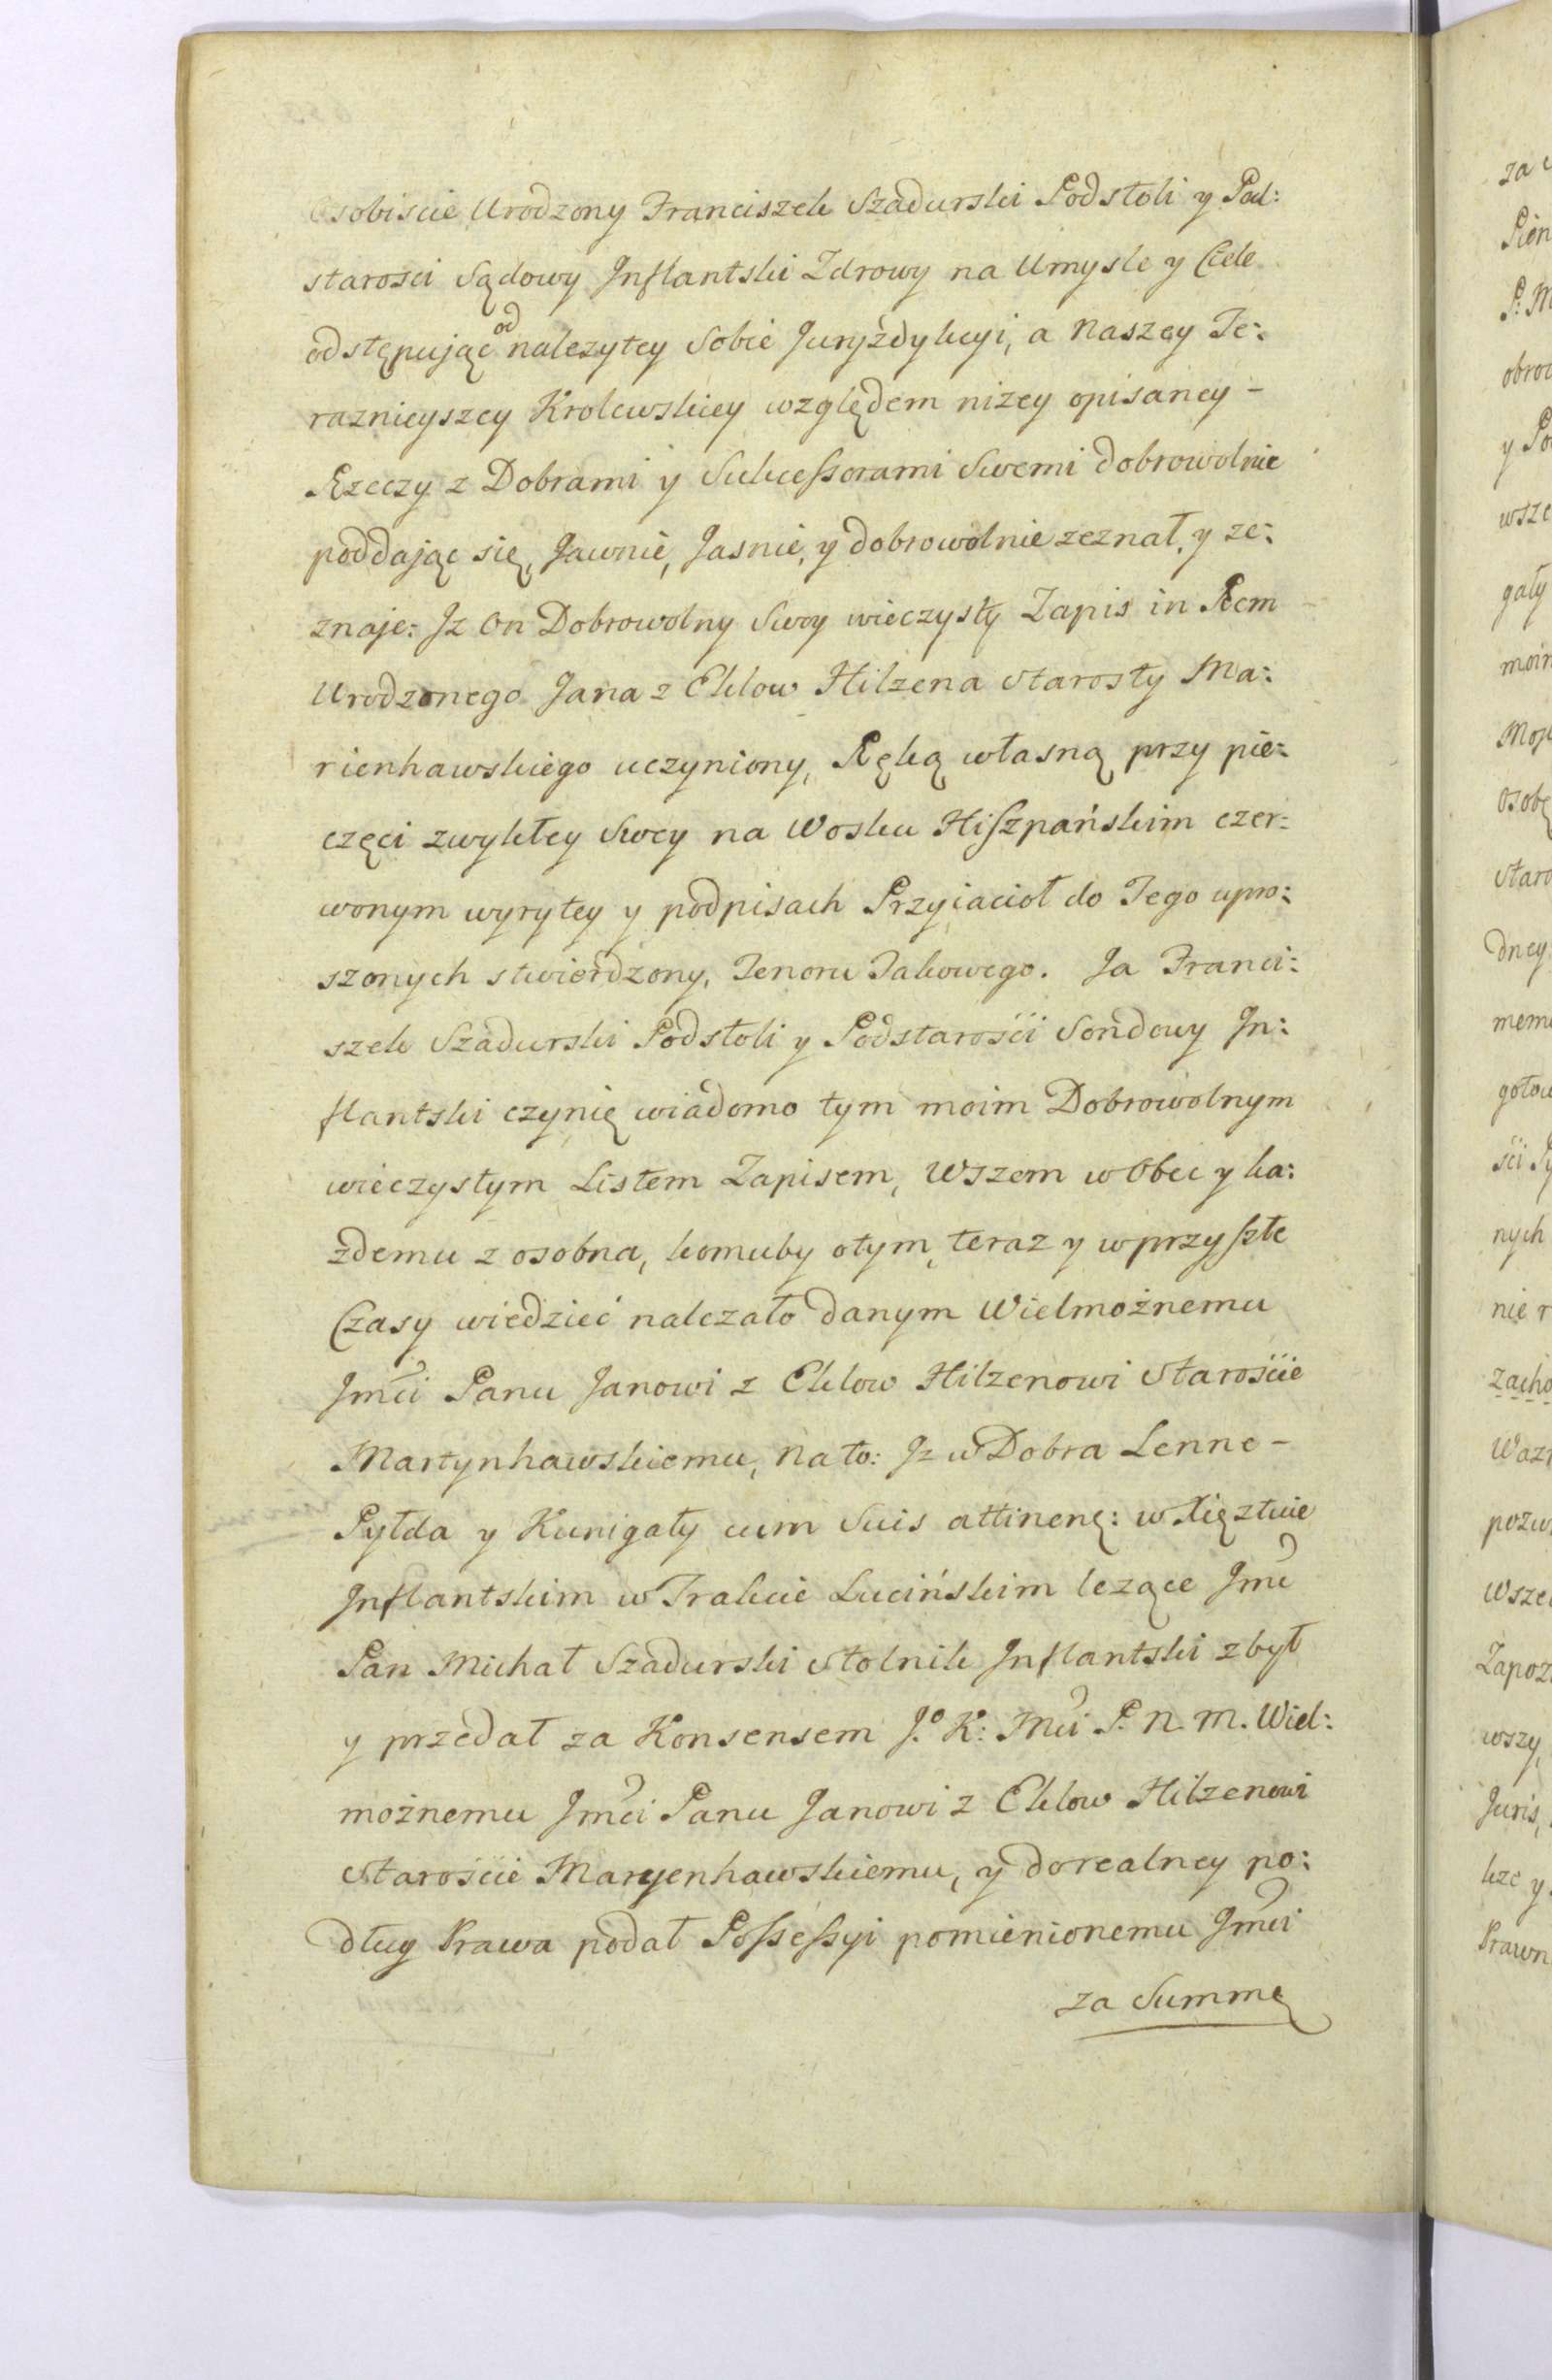 Osobiscie Urodzony Franciszek Szadurski Podstoli y Pod:
starosci Sądowy Inflantski Zdrowy na Umysle y Ciele
odstępuiąc od nalezytey Sobie Juryzdykcyi, a Naszey Te:
raznieyszey Krolewskiey względem nizey opisaney -
Rzeczy z Dobrami y Sukceßorami Swemi dobrowolnie
poddając się, Jawnie, Jasnie, y dobrowolnie zeznał, y ze:
znaje: Jz On Dobrowolny Swoy wieczysty Zapis in Rem
Urodzonego Jana z Eklow Hilzena Starosty Ma:
rienhawskiego uczyniony, Ręką własną przy pie:
częci zwykłey Swey na Wosku Hiszpańskim czer:
wonym wyrytey y podpisach Przyiacioł do Tego upro:
szonych stwierdzony, Tenoru Takowego. Ja Franci:
szek Szadurski Podstoli y Podstarości Sondowy In:
flantski czynię wiadomo tym moim Dobrowolnym
wieczystym Listem Zapisem, Wszem w Obec y ka:
zdemu z osobna, komuby otym, teraz y w przyszłe
Czasy wiedzieć nalezało danym Wielmożnemu
Jmći Panu Janowi z Eklow Hilzenowi Starośćie
Martynhawskiemu, Na to: Jz w Dobra Lenne -
Pyłda y Kunigały cum Suis attinenę: w Xięztwie
Inflantskim w Trakcie Lucińskim lezące Jmć
Pan Michał Szadurski Stolnik Inflantski zbył
y przedał za Konsensem J.º K: Mći P. N. M. Wiel:
możnemu Jmći Panu Janowi z Eklow Hilzenowi
Starośćie Maryenhawskiemu, y do realney po:
dług Prawa podał Poßeßyi pomienionemu Jmći
za Summę